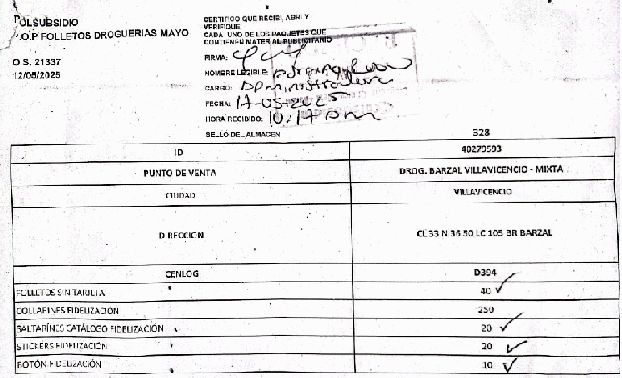 COLSUBSIDIO
P.O.P FOLLETOS DROGUERIAS MAYO
O.S. 21337
12/05/2025
CERTIFICO QUE RECIBI, ABRI Y
VERIFIQUE
CADA UNO DE LOS PAQUETES QUE
CONTIENEN MATERIAL PUBLICITARIO
FIRMA:
NOMBRE LEGIBLE:
CARGO: Administradora
FECHA: 14-05-2025
HORA RECIBIDO: 10:17 am
SELLO DEL ALMACEN
328
ID 40279593
PUNTO DE VENTA DROG. BARZAL VILLAVICENCIO - MIXTA
CIUDAD VILLAVICENCIO
DIRECCION CL 33 N 36 50 LC 105 BR BARZAL
CENLOG D304
FOLLETOS SIN TARILLA 40
COLLARINES FIDELIZACIÓN 250
SALTARINES CATÁLOGO FIDELIZACIÓN 20
STICKERS FIDELIZACIÓN 20
BOTÓN FIDELIZACIÓN 10